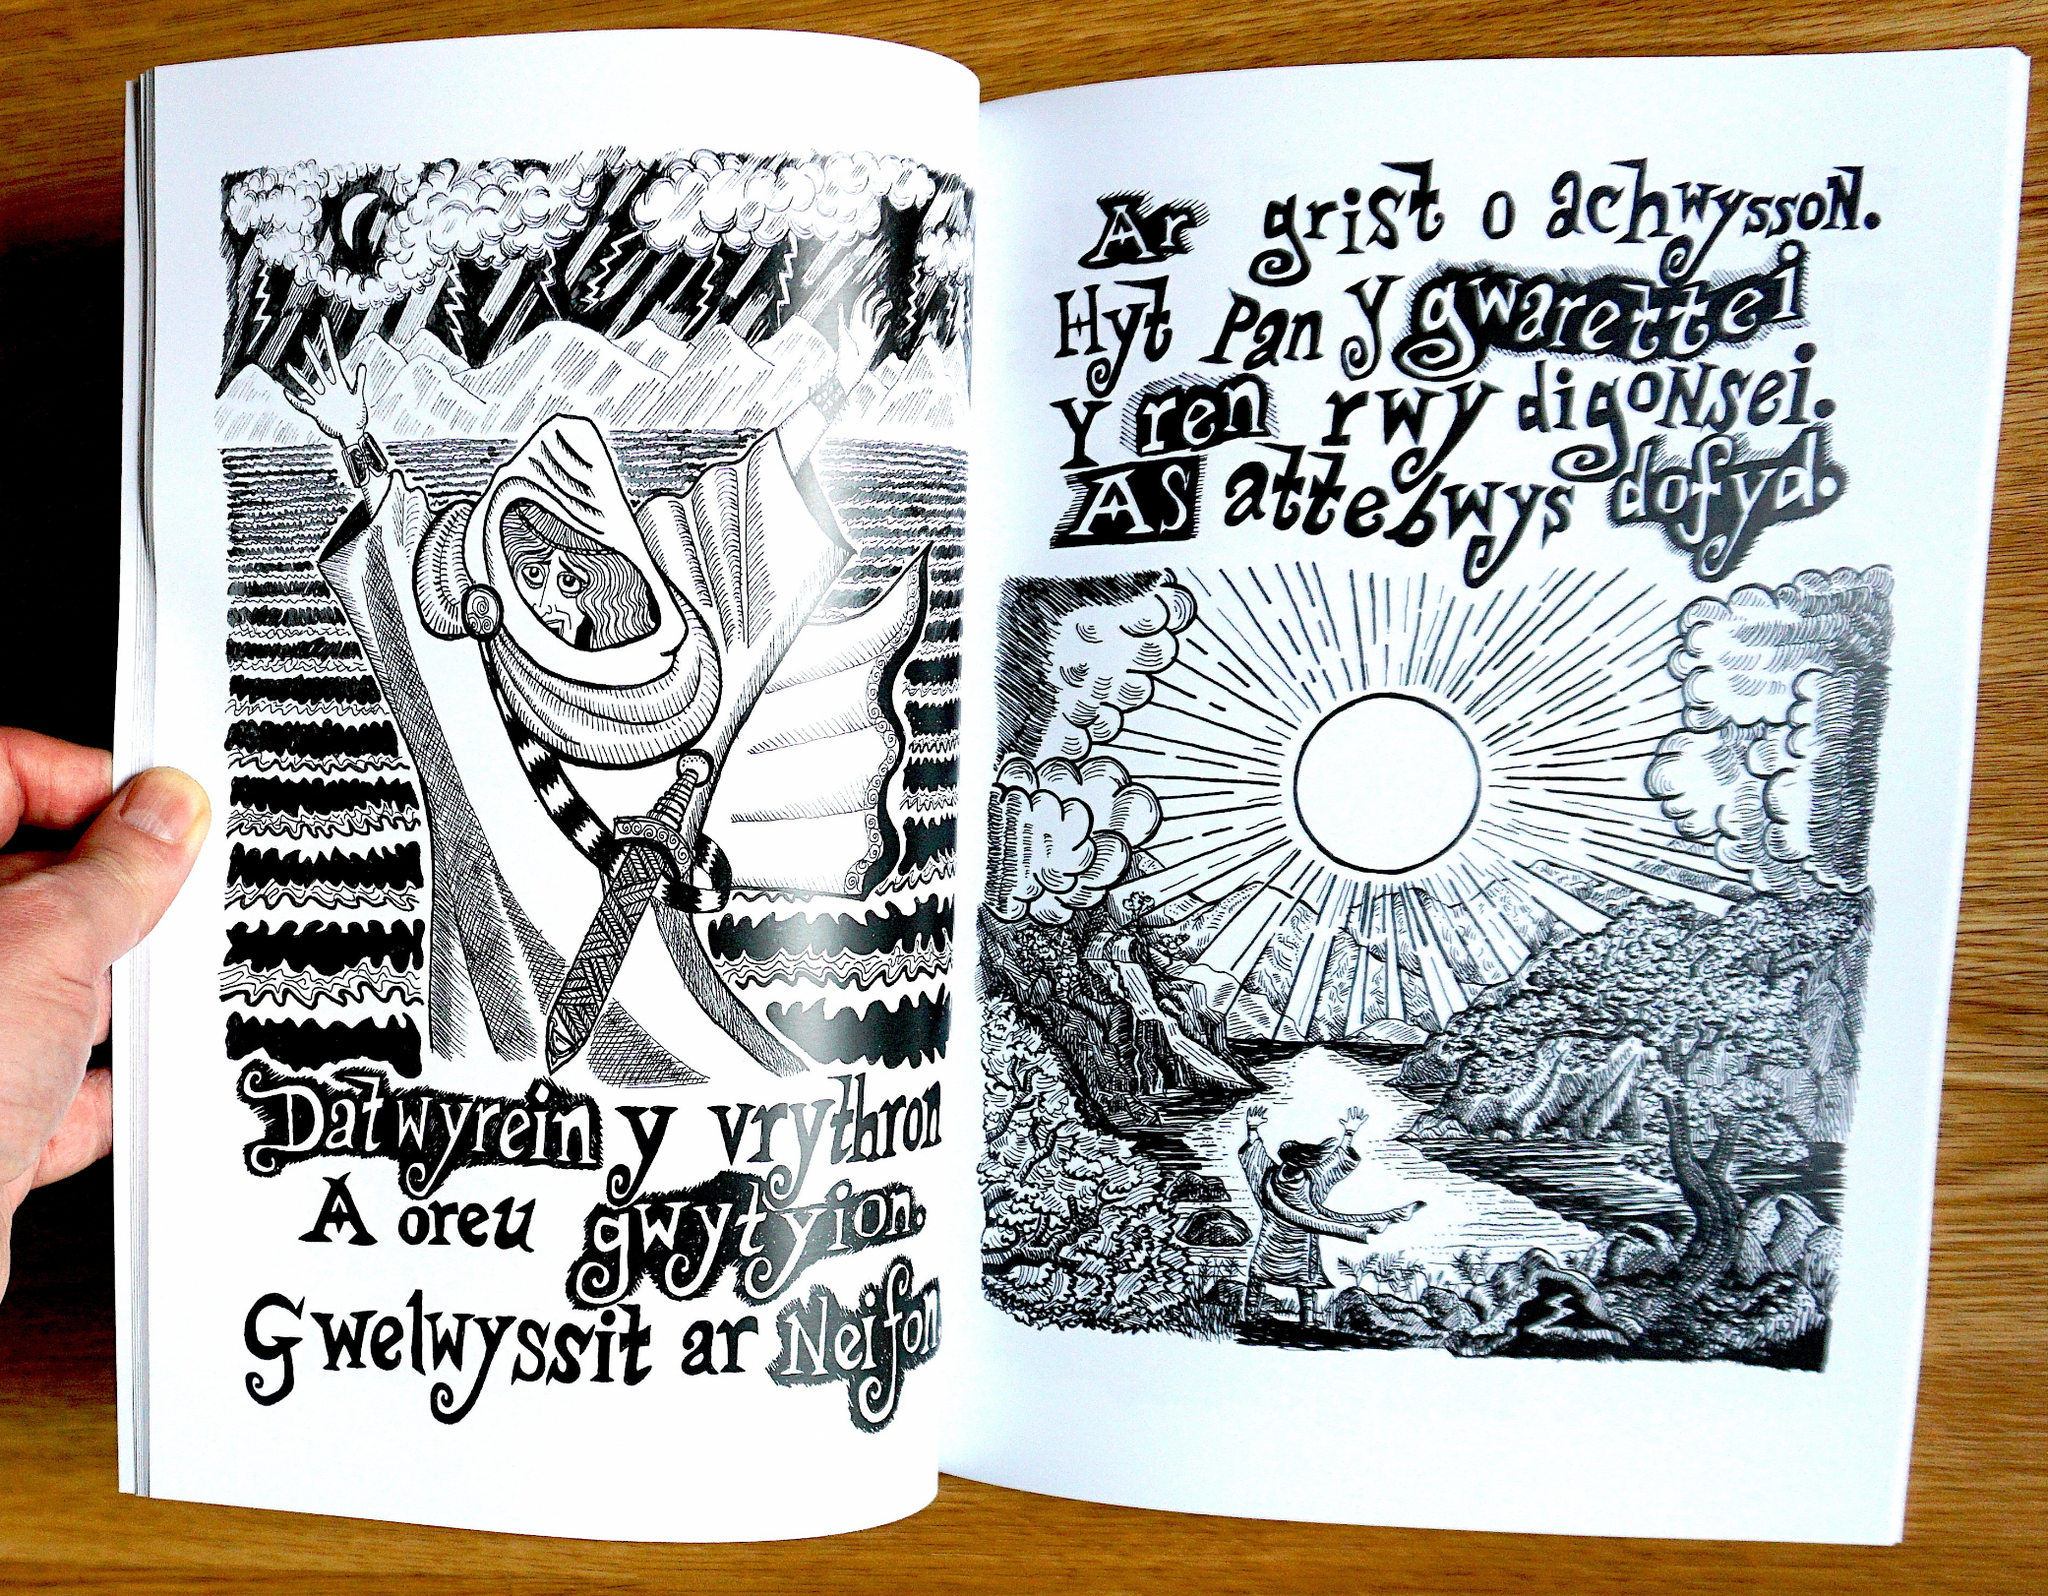 Datwyrein y vrythron
A oreu gwytyion.
Gwelwyssit ar Neifon
Ar grist o achwysson.
Hyt Pan y gwarettei
Y ren rwy digonsei.
As attebwys dofyd.